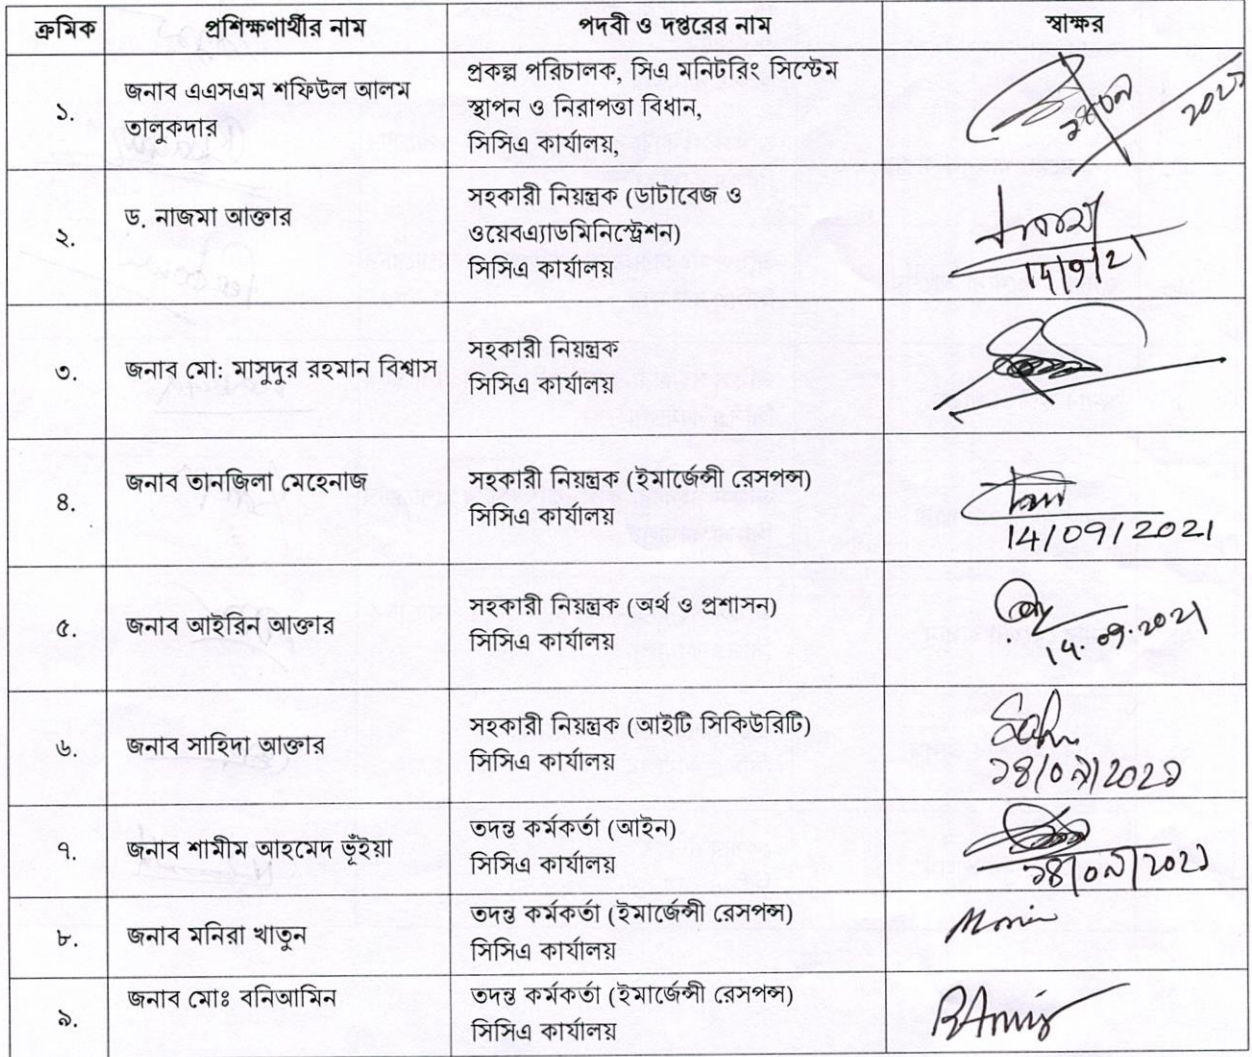 ক্রমিক প্রশিক্ষণার্থীর নাম পদবী ও দপ্তরের নাম স্বাক্ষর
১.
জনাব এএসএম শফিউল আলম
তালুকদার
প্রকল্প পরিচালক, সিএ মনিটরিং সিস্টেম
স্থাপন ও নিরাপত্তা বিধান,
সিসিএ কার্যালয়,
২.
ড. নাজমা আক্তার
সহকারী নিয়ন্ত্রক (ডাটাবেজ ও
ওয়েবএ্যাডমিনিস্ট্রেশন)
সিসিএ কার্যালয়
14/9/21
৩.
জনাব মো: মাসুদুর রহমান বিশ্বাস
সহকারী নিয়ন্ত্রক
সিসিএ কার্যালয়
৪.
জনাব তানজিলা মেহেনাজ
সহকারী নিয়ন্ত্রক (ইমার্জেন্সী রেসপন্স)
সিসিএ কার্যালয়
14/09/2021
৫.
জনাব আইরিন আক্তার
সহকারী নিয়ন্ত্রক (অর্থ ও প্রশাসন)
সিসিএ কার্যালয়
14.09.2021
৬.
জনাব সাহিদা আক্তার
সহকারী নিয়ন্ত্রক (আইটি সিকিউরিটি)
সিসিএ কার্যালয়
১৪/০৯/২০২১
৭.
জনাব শামীম আহমেদ ভূঁইয়া
তদন্ত কর্মকর্তা (আইন)
সিসিএ কার্যালয়
১৪/০৯/২০২১
৮.
জনাব মনিরা খাতুন
তদন্ত কর্মকর্তা (ইমার্জেন্সী রেসপন্স)
সিসিএ কার্যালয়
৯.
জনাব মোঃ বনিআমিন
তদন্ত কর্মকর্তা (ইমার্জেন্সী রেসপন্স)
সিসিএ কার্যালয়
BAmin